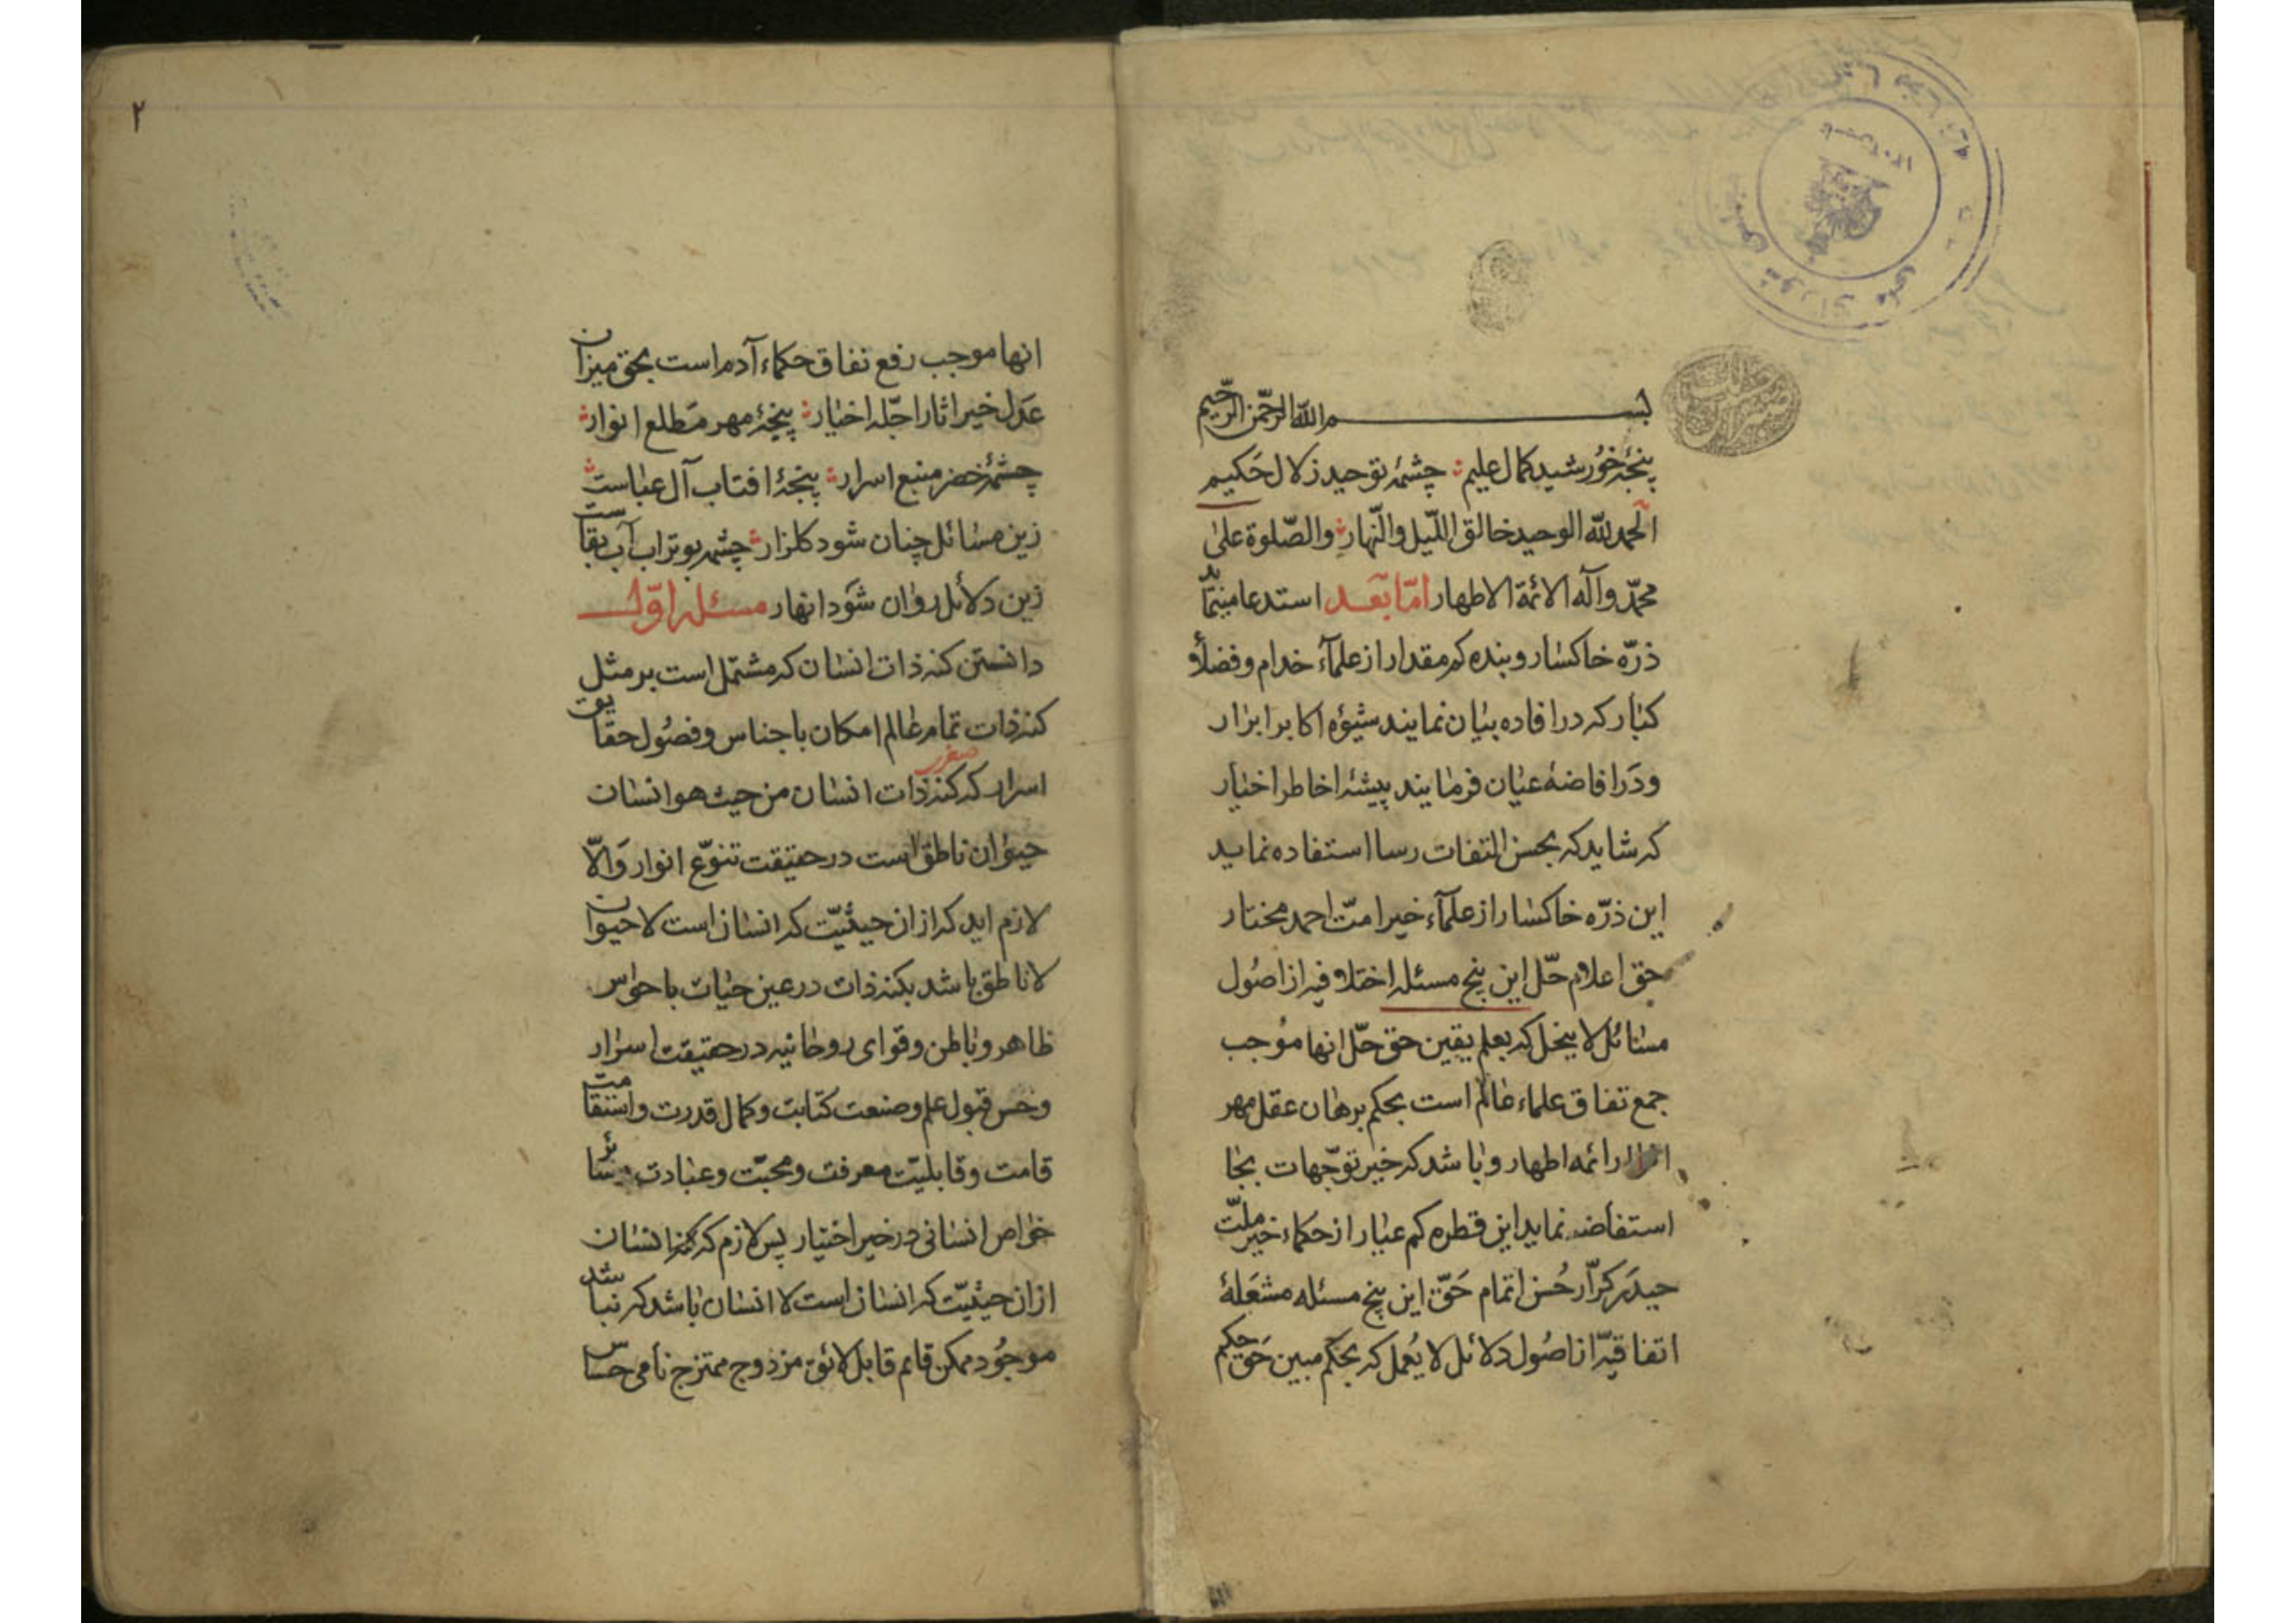 بسم الله الرحمن الرحیم
پنجهٔ خورشید کمال علیم چشمهٔ توحید زلال حکیم
الحمدلله الوحید خالق اللّیل والنّهار والصّلوة علی
محمّد وآله الائمة الاطهار امّا بعد استدعا مینماید
ذرّه خاکسار و بنده کم مقدار از علمآء خدام و فضلاء
کبار که در افاده بیان نمایند شیؤه اکابر ابرار
ودر افاضهٔ عیان فرمایند پیشهٔ اخاطر اخیار
که شاید که بحسن التفات رسا استفاده نماید
این ذرّه خاکسار از علمآء خیر امت احمد مختار
حق اعلام حلّ این پنج مسئله اختلافیه از اصول
مسائل لا ینحل که بعلم یقین حق حلّ انها موجب
جمع تفاق علماء عالم است بحکم برهان عقل مهر
ائمه اطهار و با شد که خیر توجّهات بخا
استفاضه نماید این قطره کم عیار از حکماء خیر ملّت
حیدر کرّار حُسن اتمام حَقّ این پنج مسئله مشعَلهٔ
اتفاقیّه از اصُول دلائل لا یُعمل که بحکم مبین حَق حکیم
۲
انها موجب رفع نفاق حکماء آدم است بحق میزان
عَدل خیر اثار اجلّه اخیار پنجهٔ مهر مَطلع انوار
چشمهٔ خضر منبع اسرار پنجهٔ افتاب آل عباست
زین مسائل چنان شود کلزار چشمه بو تراب آب بقاست
زین دلائل روان شوَد انهار مسئله اوّل
دانستن کنه ذات انسان که مشتمل است بر مثل
کنه ذات تمام عالم امکان باجناس و فصُول حقایق
اسرار که کنه ذات انسان من حیث هو انسان
حیوان ناطق است در حقیقت تنوّع انوار وَالّا
لازم اید که از ان حیثیّت که انسان است لا حیوان
لا ناطق باشد بکنه ذات در عین حیات با حواس
ظاهر و باطن و قوای روحانیه در حقیقت اسرار
وحسن قبول علم و صنعت کتابت و کمال قدرت و استقامت
قامت و قابلیّت معرفت و محبّت و عبادت و سائر
خواص انسانی در خیر اختیار پس لازم که کنه انسان
از ان حیثیّت که انسان است لا انسان باشد که نباشد
موجُود ممکن قایم قابل لائق مزدوج ممتزج نامی حساس